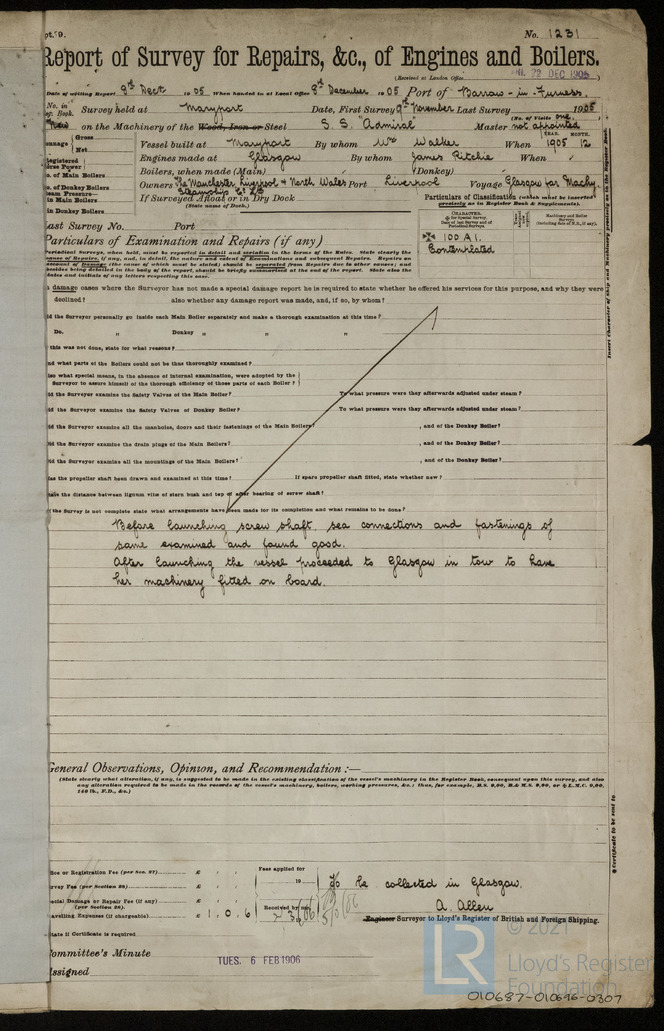 pt. 9.
No. 1231
Report of Survey for Repairs, &c., of Engines and Boilers.
(Received at London Office 22 DEC 1905 )
Date of writing Report 9th Dect 1905 When handed in at Local Office 8th December 1905 Port of Barrow-in-Furness.
No. in Reg. Book. Survey held at Maryport Date, First Survey 9th November Last Survey 1905
(No. of Visits one.)
New on the Machinery of the Wood, Iron or Steel S. S. "Admiral" Master not appointed
YEAR. MONTH.
Tonnage Gross Net Vessel built at Maryport By whom Wm Walker When 1905 12
Registered Horse Power Engines made at Glasgow By whom James Ritchie When
No. of Main Boilers Boilers, when made (Main) (Donkey)
No. of Donkey Boilers Owners The Manchester, Liverpool & North Wales Steamship Co. Ld Port Liverpool Voyage Glasgow for Machy.
Steam Pressure—
in Main Boilers If Surveyed Afloat or in Dry Dock
(State name of Dock.)
in Donkey Boilers
Particulars of Classification (which must be inserted precisely as in Register Book & Supplements).
Last Survey No. Port
CHARACTER.
100 A1.
Contemplated
Particulars of Examination and Repairs (if any)
Periodical Surveys, when held, must be reported in detail and seriatim in the terms of the Rules. State clearly the
besides being detailed in the body of the report, should be briefly summarised at the end of the report. State also the
dates and initials of any letters respecting this case.
In damage cases where the Surveyor has not made a special damage report he is required to state whether he offered his services for this purpose, and why they were
declined? also whether any damage report was made, and, if so, by whom?
Did the Surveyor personally go inside each Main Boiler separately and make a thorough examination at this time?
Do. „ Donkey „ „ „
If this was not done, state for what reasons?
And what parts of the Boilers could not be thus thoroughly examined?
Also what special means, in the absence of internal examination, were adopted by the
Surveyor to assure himself of the thorough efficiency of those parts of each Boiler?
Did the Surveyor examine the Safety Valves of the Main Boiler? To what pressure were they afterwards adjusted under steam?
Did the Surveyor examine the Safety Valves of Donkey Boiler? To what pressure were they afterwards adjusted under steam?
Did the Surveyor examine all the manholes, doors and their fastenings of the Main Boilers? , and of the Donkey Boiler?
Did the Surveyor examine the drain plugs of the Main Boilers? , and of the Donkey Boiler?
Did the Surveyor examine all the mountings of the Main Boilers? , and of the Donkey Boiler?
Has the propeller shaft been drawn and examined at this time? If spare propeller shaft fitted, state whether new?
State the distance between lignum vitæ of stern bush and top of after bearing of screw shaft?
If the Survey is not complete state what arrangements have been made for its completion and what remains to be done?
Before launching screw shaft, sea connections and fastenings of
same examined and found good.
After launching the vessel proceeded to Glasgow in tow to have
her machinery fitted on board.
General Observations, Opinion, and Recommendation:—
(State clearly what alteration, if any, is suggested to be made in the existing classification of the vessel's machinery in the Register Book, consequent upon this survey, and also
any alteration required to be made in the records of the vessel's machinery, boilers, working pressures, &c.: thus, for example, B.S. 9,00, B&M.S. 9,00, or L.M.C. 9,00,
140 lb., F.D., &c.)
Office or Registration Fee (per Sec. 27) £ Fees applied for
Survey Fee (per Section 28) £ 19 To be collected in Glasgow.
Special Damage or Repair Fee (if any) (per Section 28). £ Received by me,
A. Allen
Travelling Expenses (if chargeable) £ 1.0.6
Engineer Surveyor to Lloyd's Register of British and Foreign Shipping.
State if Certificate is required
Committee's Minute TUES. 6 FEB 1906
Assigned
Insert Character of Ship and Machinery precisely as in the Register Book.
Certificate to be sent to
LR
© 2021
Lloyd's Register
Foundation
010687-010696-0307